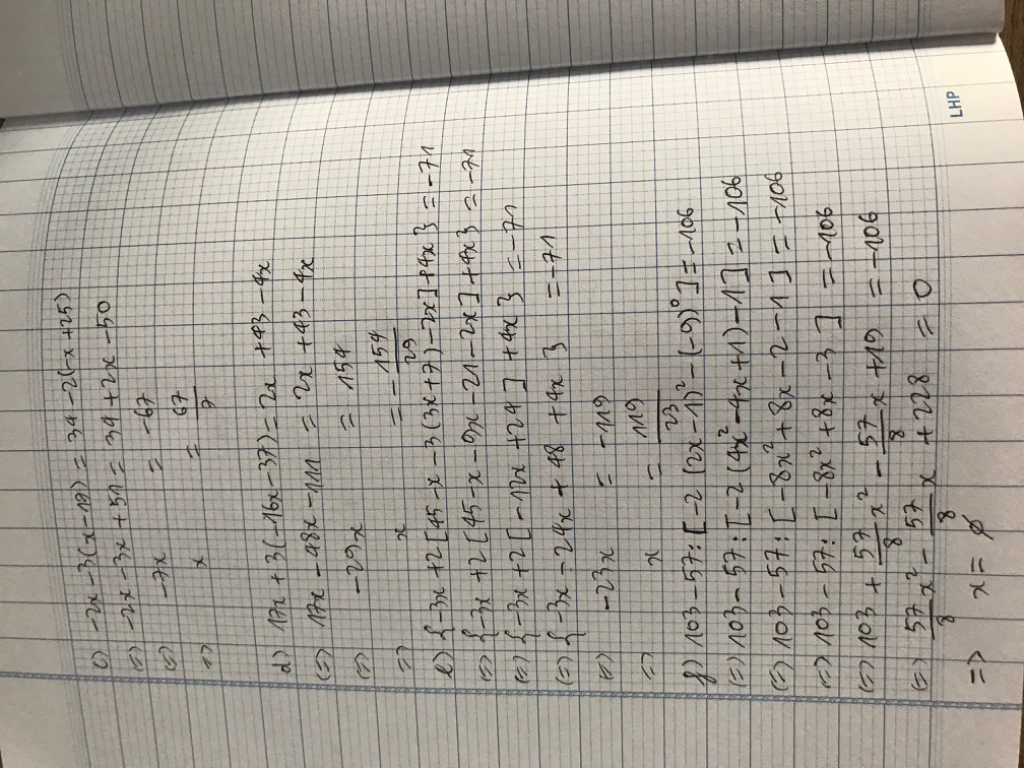 c) -2x -3(x-17) = 34 -2(-x+25)
(=) -2x -3x +51 = 34 +2x -50
(=) -7x = -67
=) x = 67/7
d) 17x +3(-16x-37) = 2x +43 -4x
(=) 17x -48x -111 = 2x +43 -4x
(=) -29x = 154
=) x = -154/29
e) {-3x +2[45-x-3(3x+7)-2x]+4x} = -71
(=) {-3x +2[45-x-9x-21-2x]+4x} = -71
(=) {-3x +2[-12x+24]+4x} = -71
(=) {-3x -24x +48 +4x} = -71
(=) -23x = -119
=) x = 119/23
f) 103 -57:[-2(2x-1)²-(-9)⁰] = -106
(=) 103 -57:[-2(4x²-4x+1)-1] = -106
(=) 103 -57:[-8x²+8x-2-1] = -106
(=) 103 -57:[-8x²+8x-3] = -106
(=) 103 + 57/8 x² - 57/8 x +19 = -106
(=) 57/8 x² - 57/8 x +228 = 0
=> x = ∅
LHP